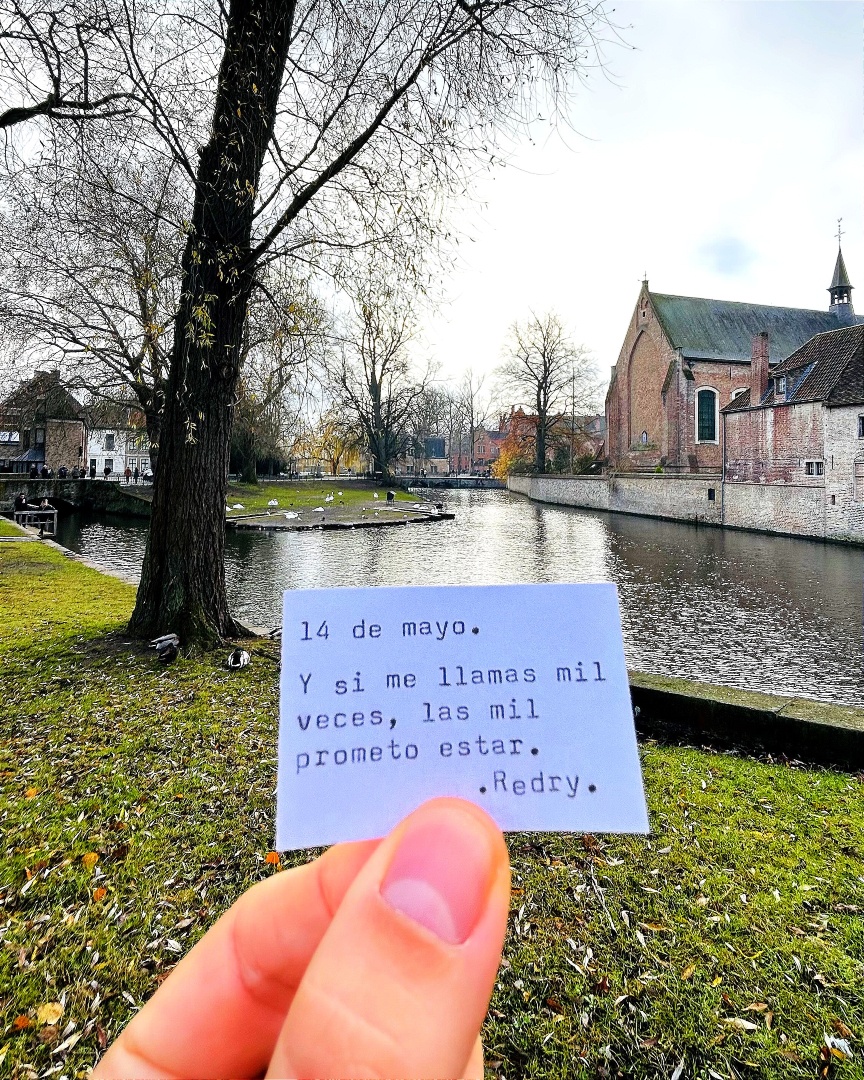 14 de mayo.
Y si me llamas mil
veces, las mil
prometo estar.
.Redry.